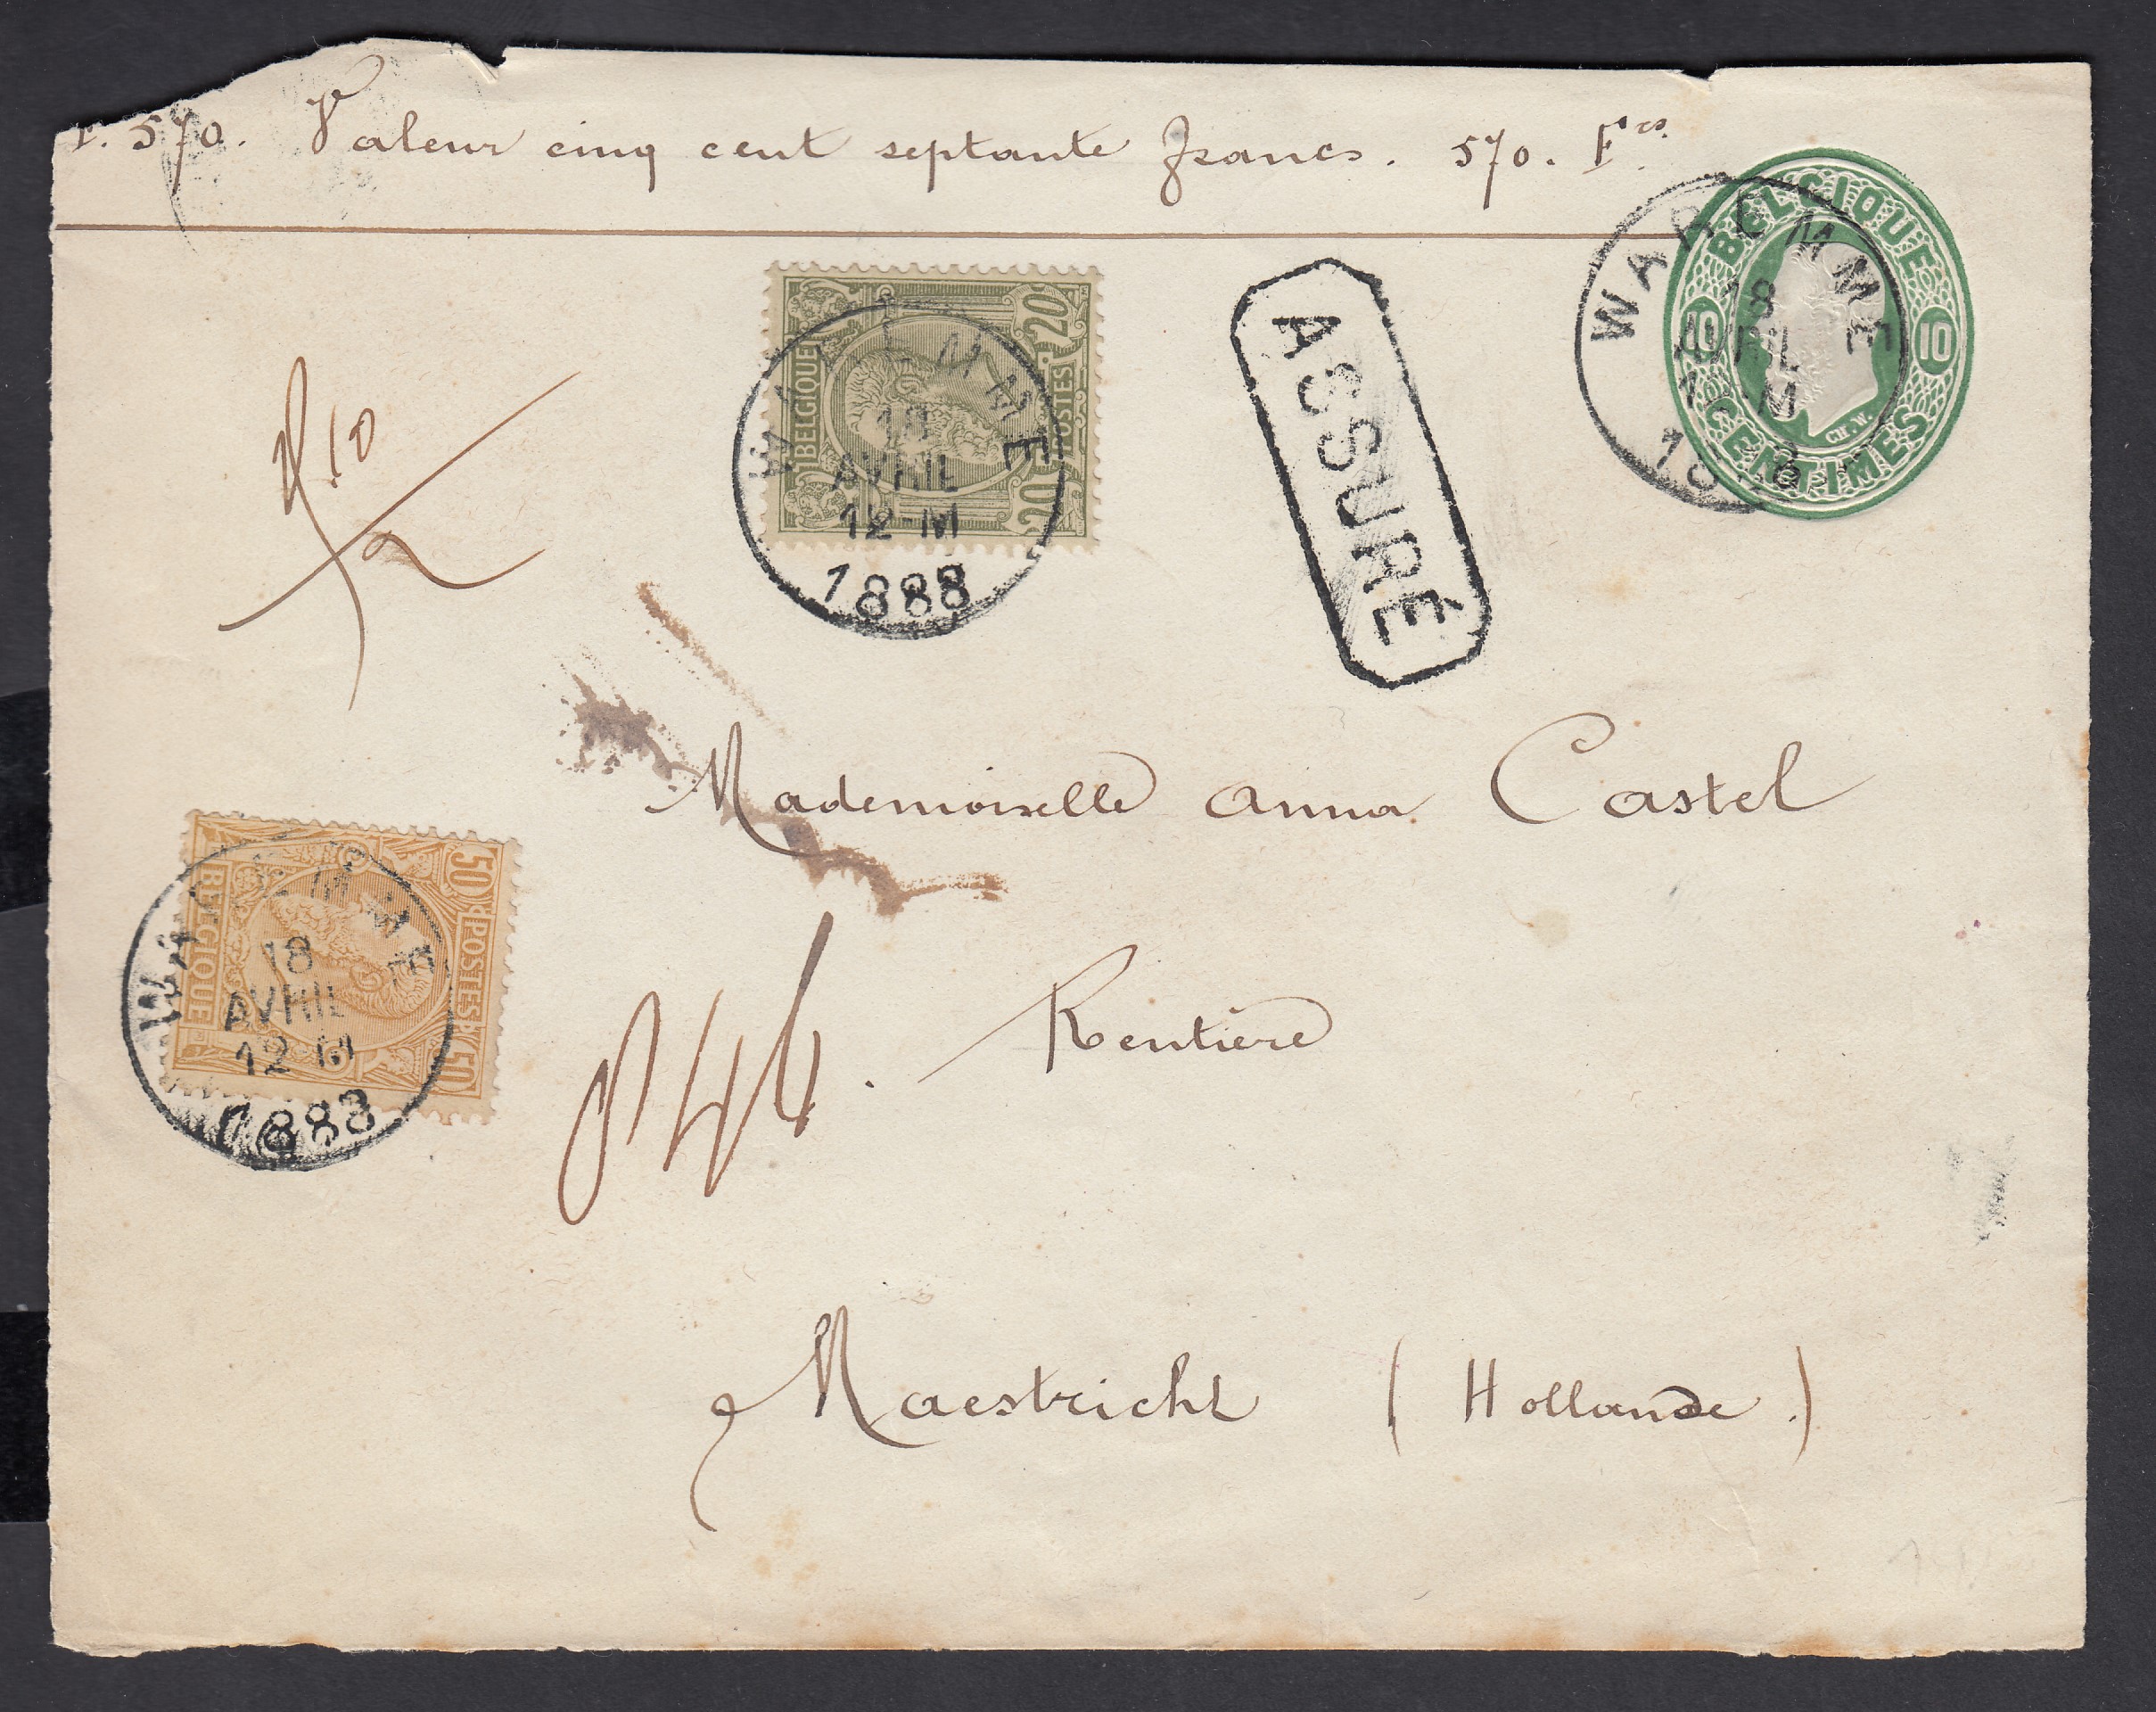 F. 570. Valeur cinq cent septante francs. 570. Fcs.
BELGIQUE
10 10
CENTIMES
CH. W.
WAREMME
18
AVRIL
12-M
1888
20 20
BELGIQUE
POSTES
WAREMME
18
AVRIL
12-M
1888
ASSURÉ
Mademoiselle Anna Castel
50 50
POSTES
BELGIQUE
WAREMME
18
AVRIL
12-M
1888
Rentière
Maestricht (Hollande.)